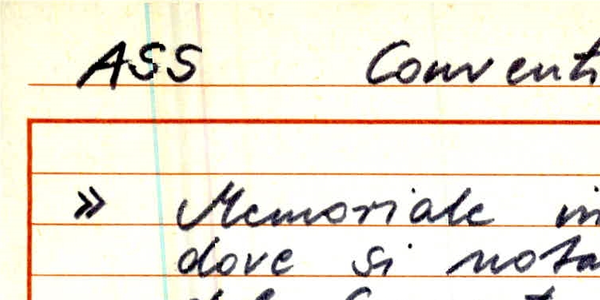 ASS Conventi
» Memoriale in
dove si nota